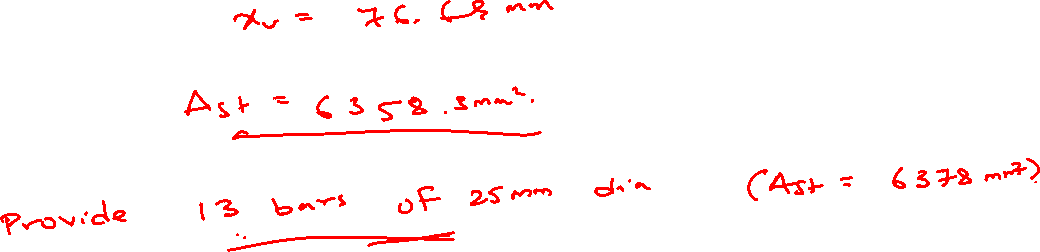 xu = 76.68 mm
Ast = 6358.3mm².
Provide 13 bars of 25mm dia (Ast = 6378 mm²)